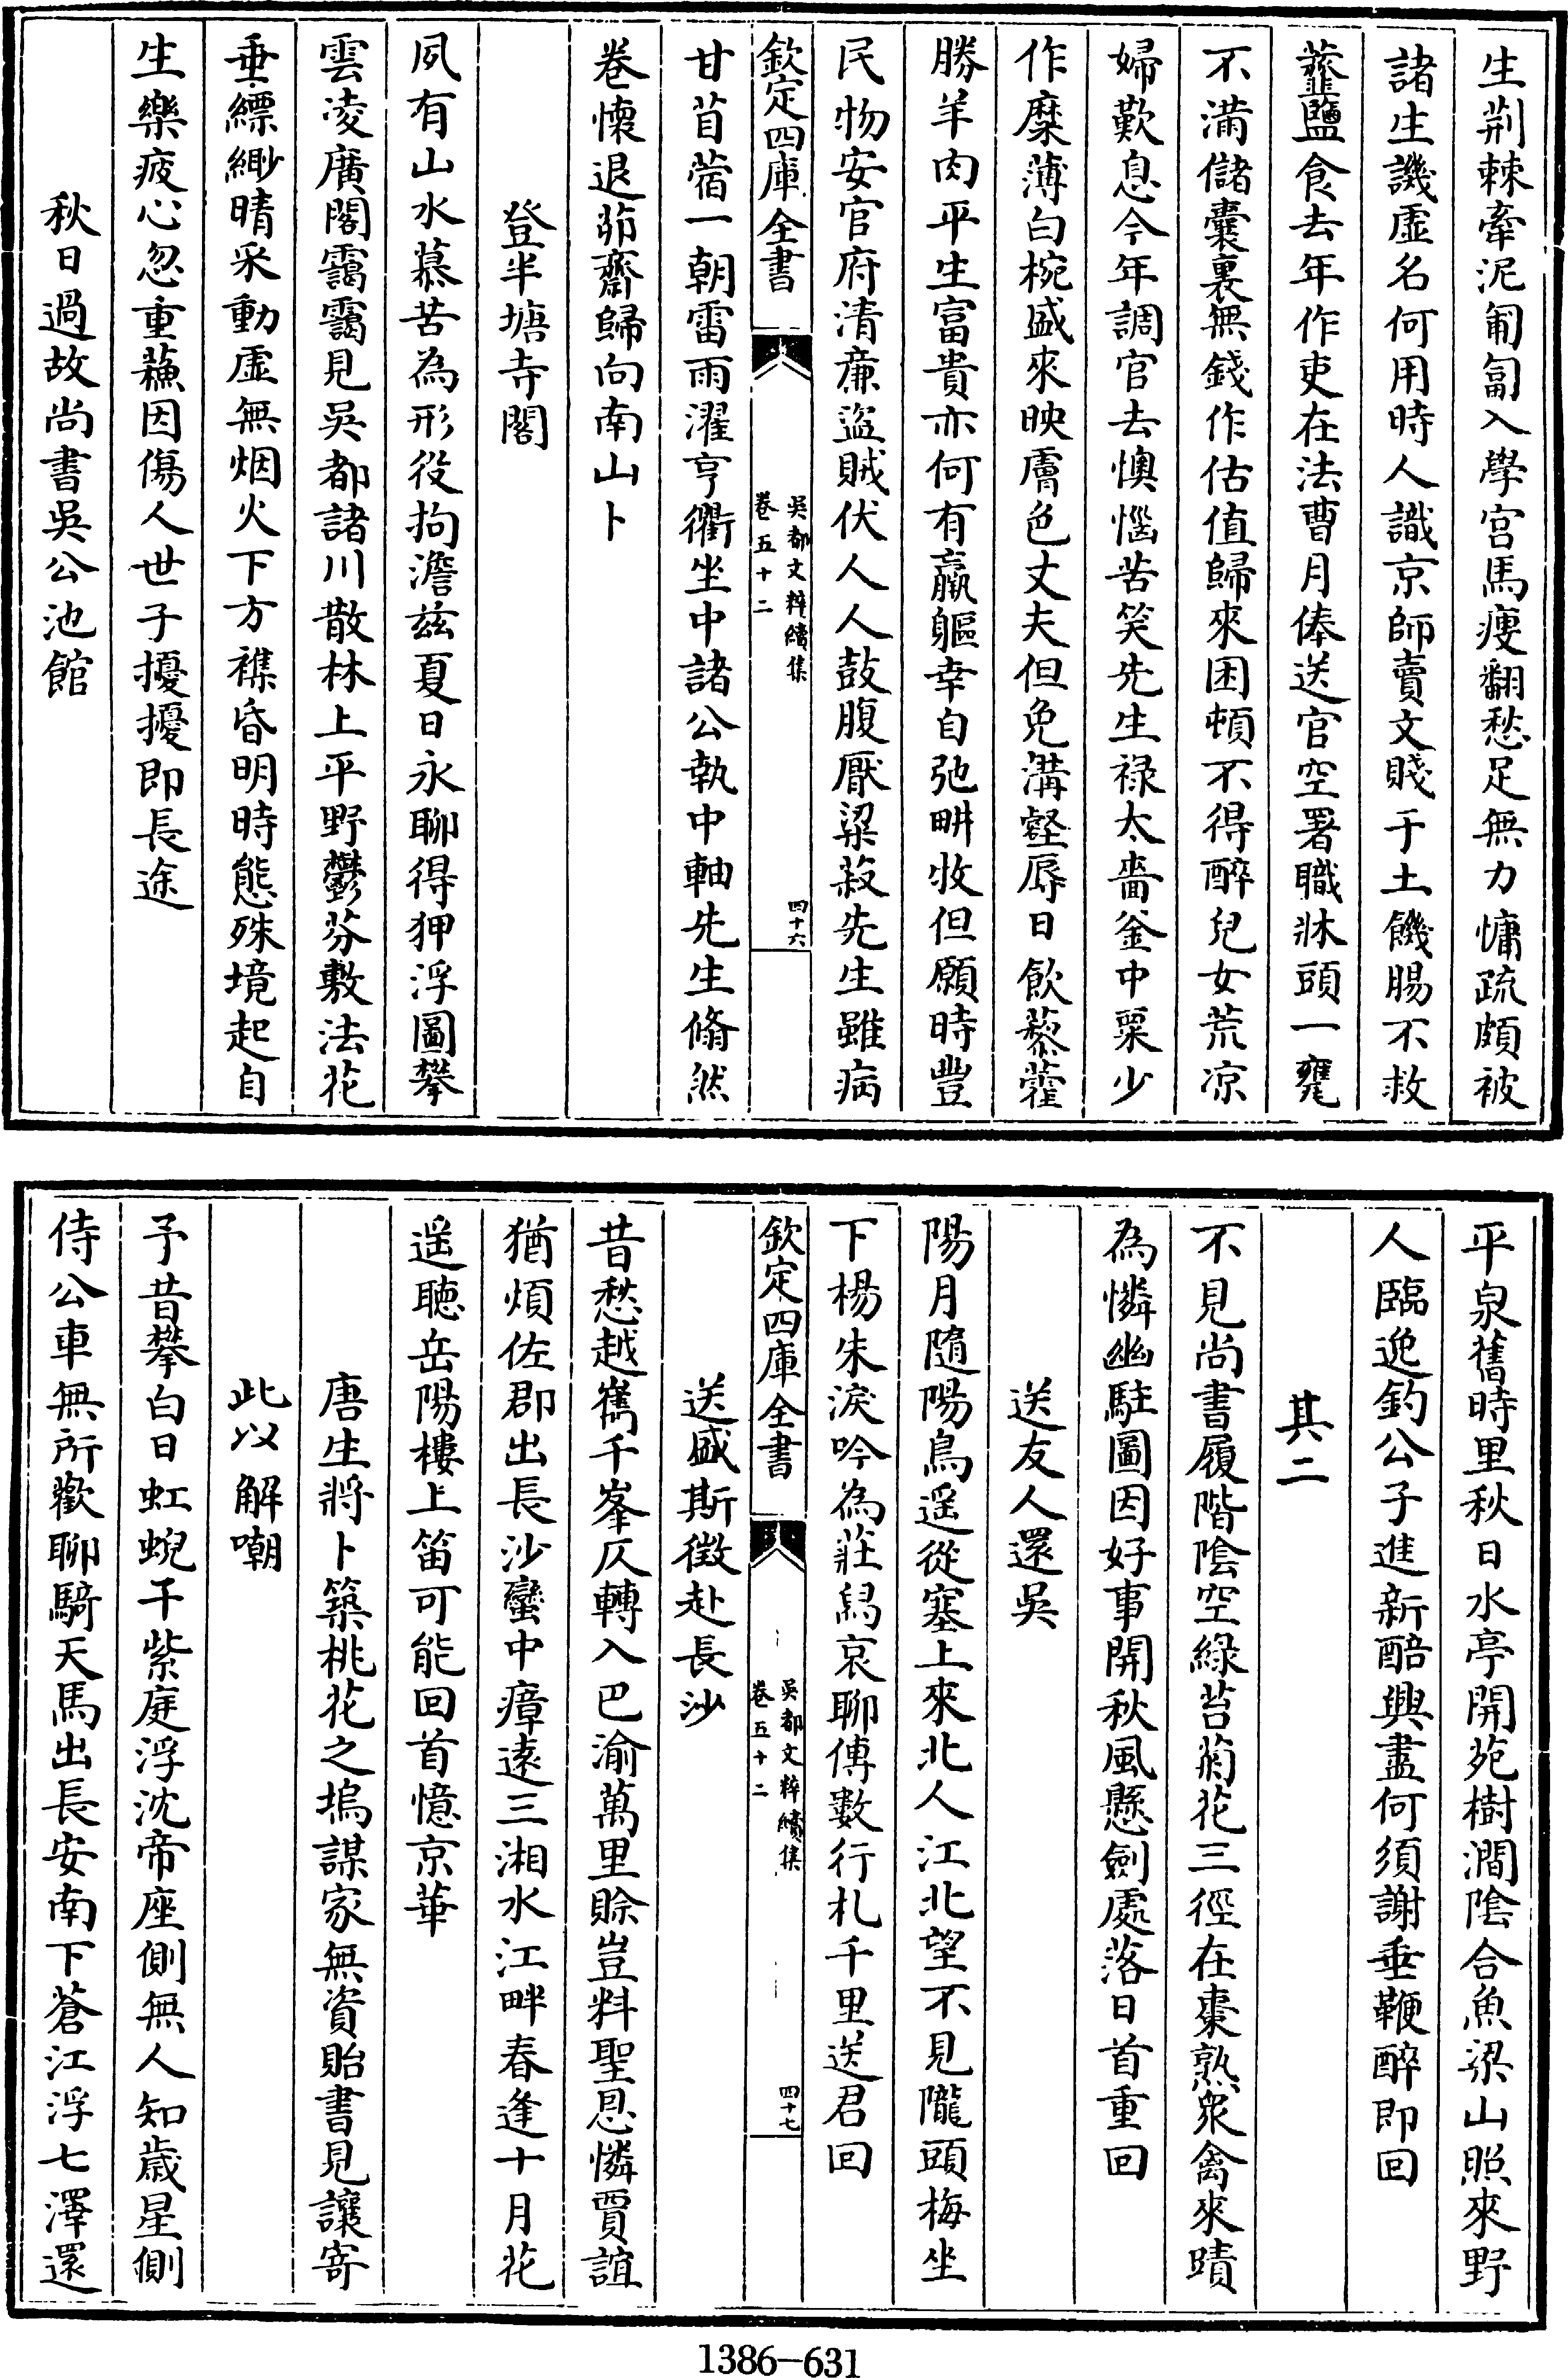 生荆棘牽泥匍匐入學宫馬痩翻愁足無力慵疏頗被
諸生譏虚名何用時人識京師賣文賤于土饑腸不救
虀鹽食去年作吏在法曹月俸送官空署職牀頭一甕
不滿儲囊裏無錢作估值歸來困頓不得醉兒女荒凉
婦歎息今年調官去懊惱苦笑先生禄太嗇釡中粟少
作糜薄白椀盛來映膚色丈夫但免溝壑辱日飲藜藿
勝羊肉平生富貴亦何有羸軀幸自弛畊牧但願時豐
民物安官府清亷盗賊伏人人鼓腹厭粱菽先生雖病
欽定四庫全書
吳都文粹續集
卷五十二
四十六
甘苜蓿一朝雷雨濯亨衢坐中諸公執中軸先生翛然
卷懷退茆齋歸向南山卜
登半塘寺閣
夙有山水慕苦為形役拘澹兹夏日永聊得狎浮圖攀
雲凌廣閣靄靄見吳都諸川散林上平野鬱芬敷法花
垂縹緲晴采動虚無烟火下方襍昏明時態殊境起自
生樂疲心忽重蘓因傷人世子擾擾即長途
秋日過故尚書吳公池館
平泉舊時里秋日水亭開苑樹澗隂合魚梁山照來野
人臨逸釣公子進新醅興盡何須謝垂鞭醉即回
其二
不見尚書履階隂空綠苔菊花三徑在棗熟衆禽來蹟
為憐幽駐圖因好事開秋風懸劍處落日首重回
送友人還吳
陽月隨陽鳥遥從塞上來北人江北望不見隴頭梅坐
下楊朱淚吟為莊舄哀聊傳數行札千里送君回
欽定四庫全書
吳都文粹續集
卷五十二
四十七
送盛斯徵赴長沙
昔愁越嶲千峯仄轉入巴渝萬里賖豈料聖恩憐賈誼
猶煩佐郡出長沙蠻中瘴遠三湘水江畔春逢十月花
遥聽岳陽樓上笛可能回首憶京華
唐生將卜築桃花之塢謀家無資貽書見讓寄
此以解嘲
予昔攀白日虹蜺干紫庭浮沈帝座側無人知歲星側
侍公車無所歡聊騎天馬出長安南下蒼江浮七澤還
1386-631